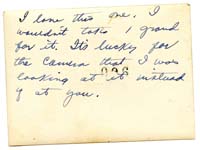 I love this one. I
wouldn't take 1 grand
for it. It's lucky for
the camera that I was
926
looking at it instead
of at you.